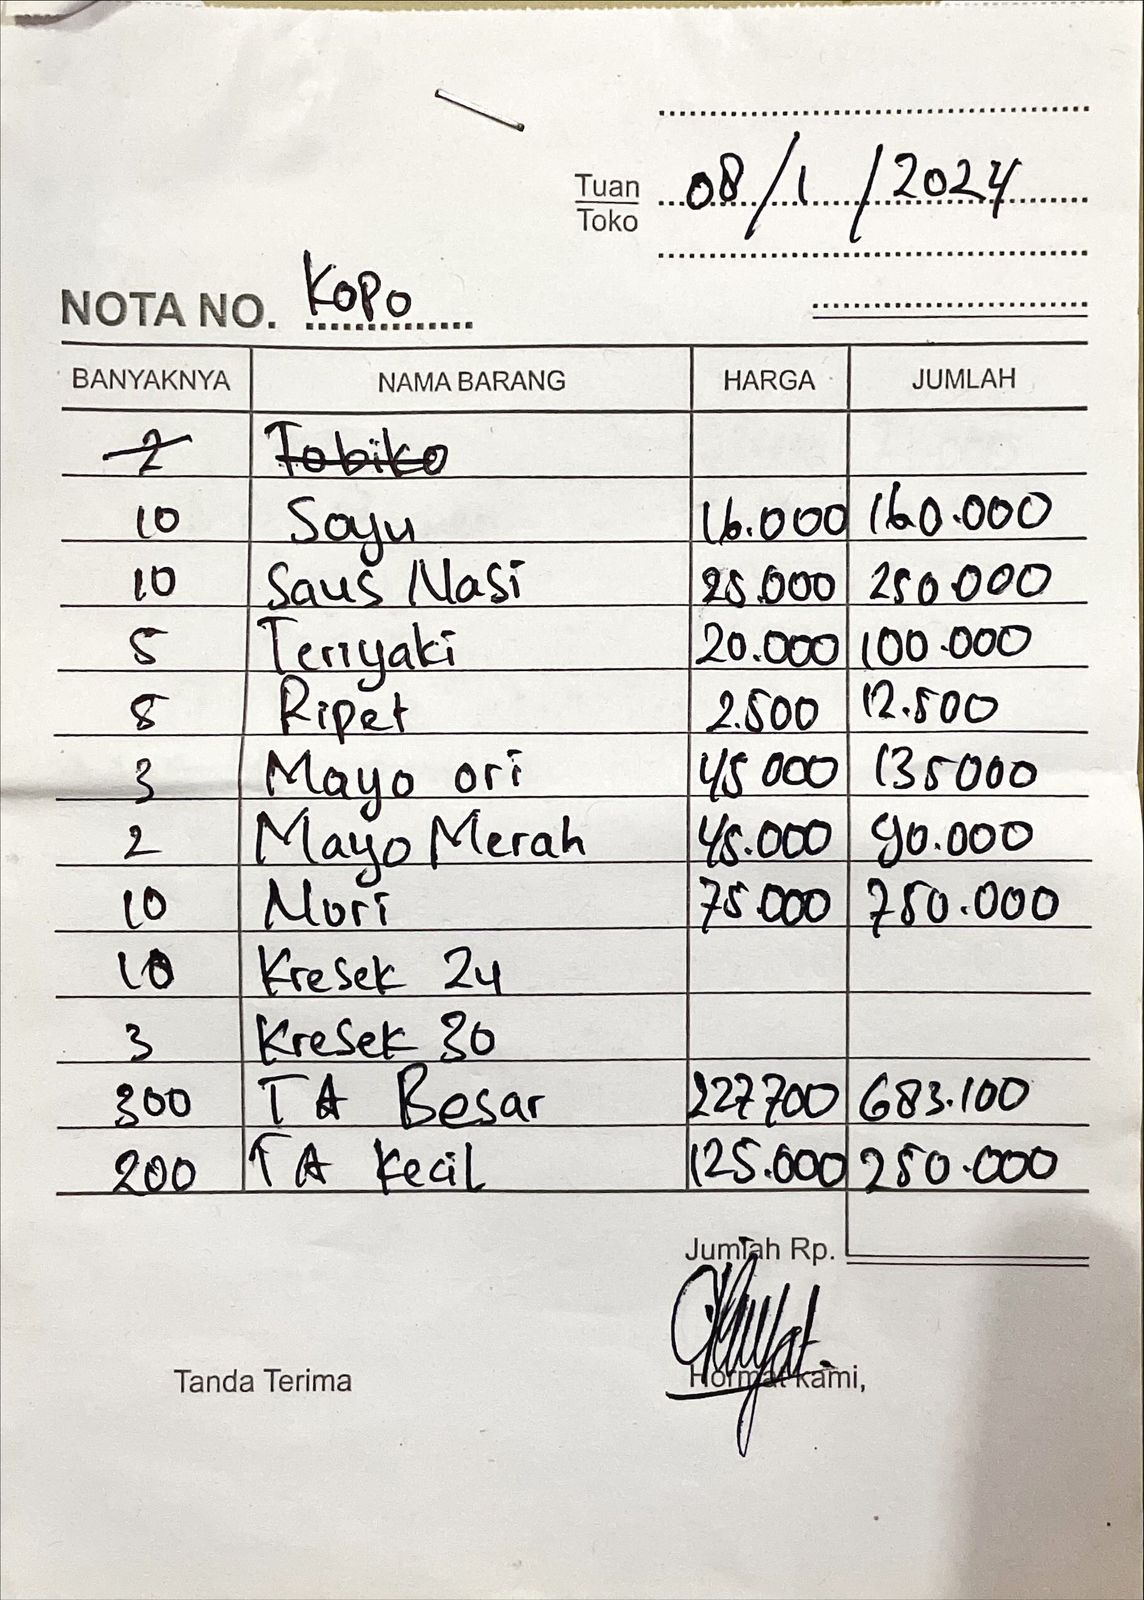 Tuan 08/1/2024
Toko
NOTA NO. KOPO
BANYAKNYA NAMA BARANG HARGA JUMLAH
2 Tobiko
10 Soyu 16.000 160.000
10 Saus Nasi 25.000 250.000
5 Teriyaki 20.000 100.000
5 Ripet 2.500 12.500
3 Mayo ori 45 000 135000
2 Mayo Merah 45.000 90.000
10 Nori 75.000 750.000
10 Kresek 24
3 Kresek 30
300 TA Besar 227700 683.100
200 TA Kecil 125.000 250.000
Jumlah Rp.
Tanda Terima Hormat kami,